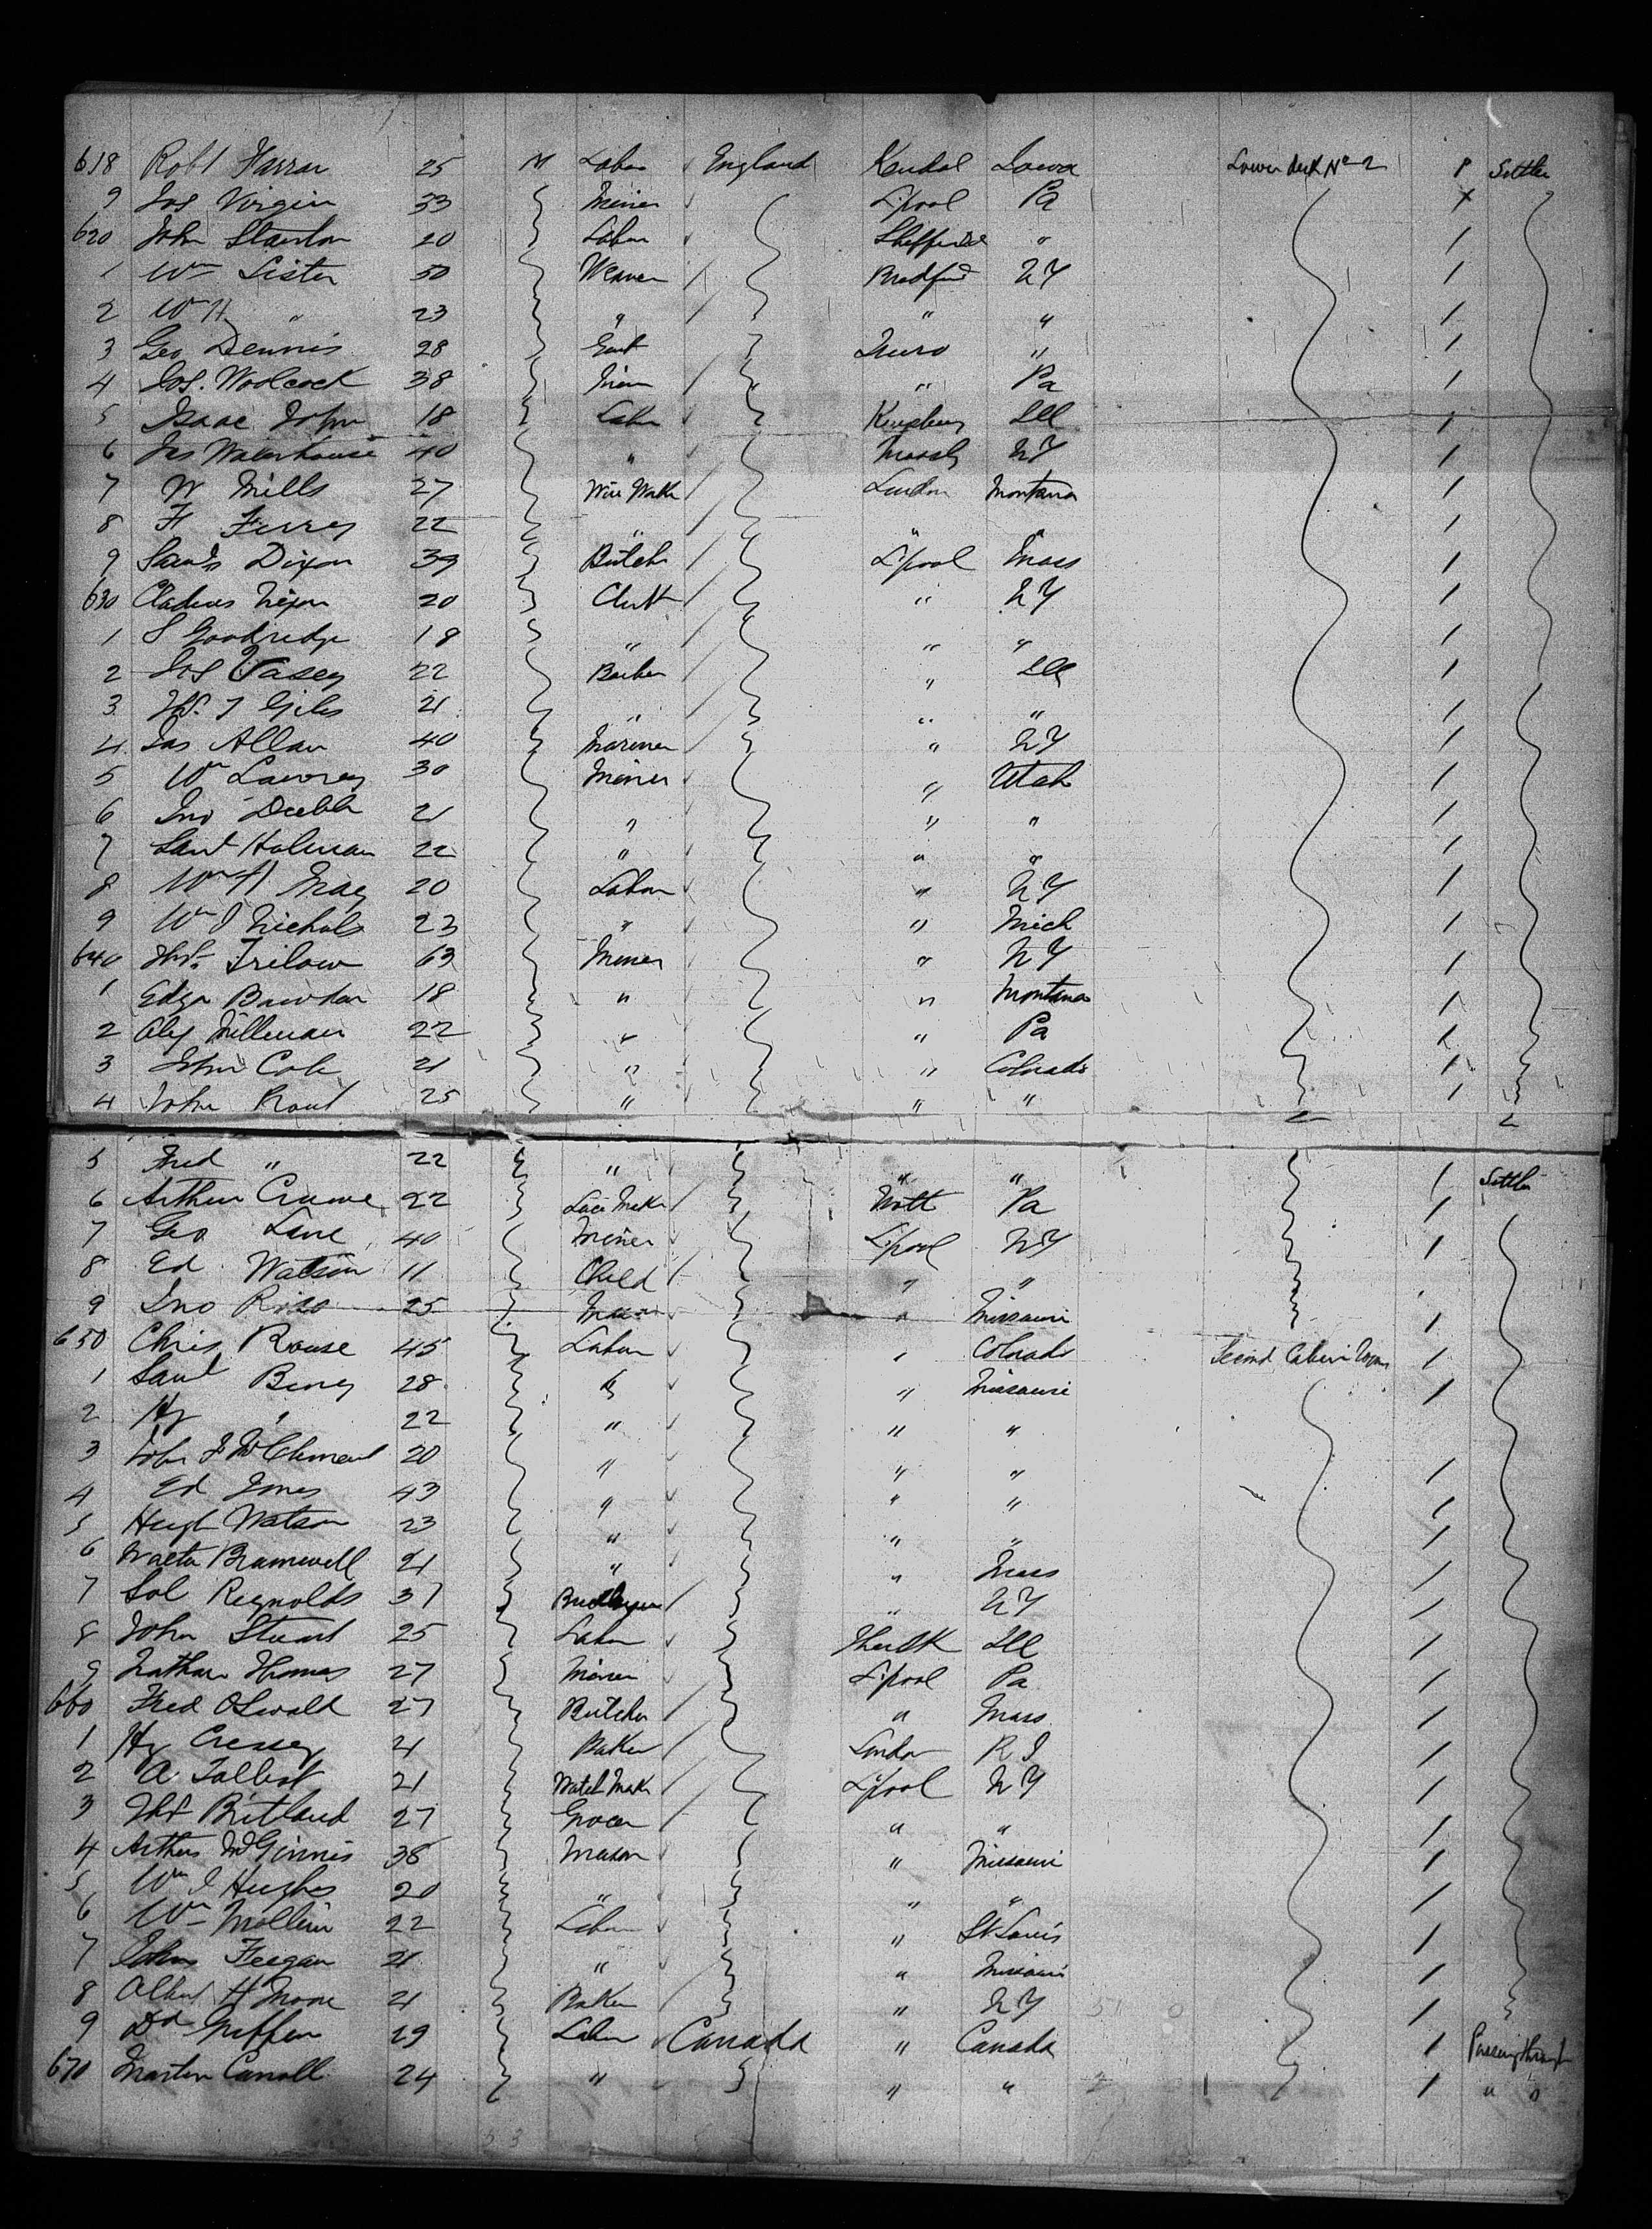 618 Robt Farrar 25 M Labor England Kendal Iowa Lower deck No 2 P Settler
9 Jos Virgin 33 Miner L'pool Pa
620 John Stanton 20 Labor Sheffield "
1 Wm Lister 50 Weaver Bradford NY
2 Wm H " 23 " " "
3 Geo Dennis 28 Gent Truro "
4 Jos. Woolcock 38 " Pa
5 Isaac John 18 Labor Ill
6 Jas Waterhouse 40 " NY
7 W Mills 27 Wire Wakr London Montana
8 H 22 " " "
9 Saml Dixon 39 Butchr L'pool Mass
630 Nixon 20 Clerk " NY
1 S Goodridge 18 " " "
2 Jos Vasey 22 Barber " Ill
3 Giles 21 " " "
4 Jas Allan 40 Mariner " NY
5 Wm Lawrey 30 Miner " Utah
6 Jno 21 " " "
7 Saml Holman 22 " " "
8 Wm H May 20 Labor " NY
9 Wm J Nichols 23 " " Mich
640 Trilow 63 Miner " NY
1 Edgr Bowden 18 " " Montana
2 Alex Millman 22 " " Pa
3 John Cole 21 " " Colorado
4 John Prout 25 " " "
5 Fred " 22 " " " Settler
6 Arthur 22 Lace Makr Nott Pa
7 Geo Lane 40 Miner L'pool NY
8 Ed Watson 11 Child " "
9 Jno 25 " Missouri
650 Chris Rouse 45 Labor " Colorado Second Cabin
1 Saml Berry 28 " " Missouri
2 Hy " 22 " " "
3 John F McClement 20 " " "
4 Ed Jones 43 " " "
5 Hugh Watson 23 " " "
6 Walter Bramwell 21 " " Mass
7 Sol Reynolds 37 " NY
8 John Stuart 25 Labor Ill
9 Nathan Thomas 27 Miner L'pool Pa
660 Fred Oswald 27 Butcher " Mass
1 Hy Cressey 21 Baker London R I
2 A Talbot 21 Watch Makr L'pool NY
3 Thos Britland 27 Grocer " "
4 Arthur McGinnis 38 Mason " Missouri
5 Wm J Hughes 20 " " "
6 Wm Mollin 22 Labor " St Louis
7 John Feegan 21 " " Missouri
8 Albert H Moore 21 Baker " NY
9 Dd Griffen 29 Labor Canada " Canada Passing through
670 Martin Carroll 24 " " " " "